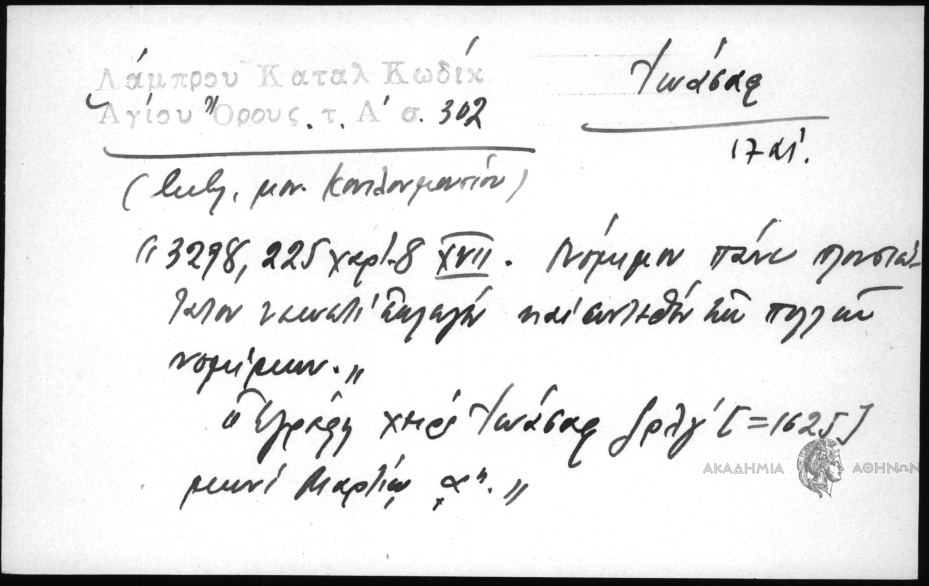 Λάμπρου Καταλ Κωδίκ
Ἁγίου Ὄρους. τ. Α' σ. 302
Ἰωάσαφ
17 αἰ.
(Βιβλ. μον. Κουτλουμουσίου)
"3298, 225 χαρτ. 8 XVII. Νόμιμον πάνυ πλουσιώ-
τατον καὶ συντεθὲν πολλῶν
νομίμων."
"Ἐγράφη χειρὶ Ἰωάσαφ ͵ζρλγ' [=1625]
μηνὶ Μαρτίῳ αη."
ΑΚΑΔΗΜΙΑ ΑΘΗΝΩΝ